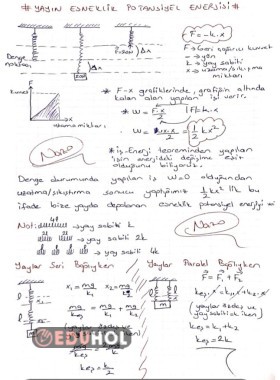 # YAYIN ESNEKLİK POTANSİYEL ENERJİSİ #
F = -k.x
Denge noktası
Δx
F=Geri çağırıcı kuvvet
- → yön
k → yay sabiti
x → uzama/sıkışma miktarı
Kuvvet
F
x
uzama miktarı
* F-x grafiklerinde, grafiğin altında kalan alan yapılan işi verir.
* W = F.x / 2
F=k.x
W = k.x.x / 2 = 1/2 kx²
* iş-Enerji teoreminden yapılan işin enerjideki değişime eşit olduğunu biliyoruz.
Naro
Denge durumunda yapılan iş W=0 olduğundan
uzatma/sıkıştırma sonucu yaptığımız 1/2 kx² lik bu
ifade bize yayda depolanan esneklik potansiyel enerjiyi
Not: 4l → yay sabiti k
2l 2l → yay sabiti 2k
l l l l → yay sabiti 4k
Naro
Yaylar Seri Bağlıyken
x₁ = mg/k₁ x₂ = mg/k₂
mg/keş = mg/k₁ + mg/k₂
(yaylar özdeş)
keş = k/2
Yaylar Paralel Bağlıyken
F = F₁ + F₂
keş.x = k₁.x + k₂.x
(yaylar özdeş ve yay sabiti k iken)
keş = k₁ + k₂
keş = 2k
m
EDUHOL